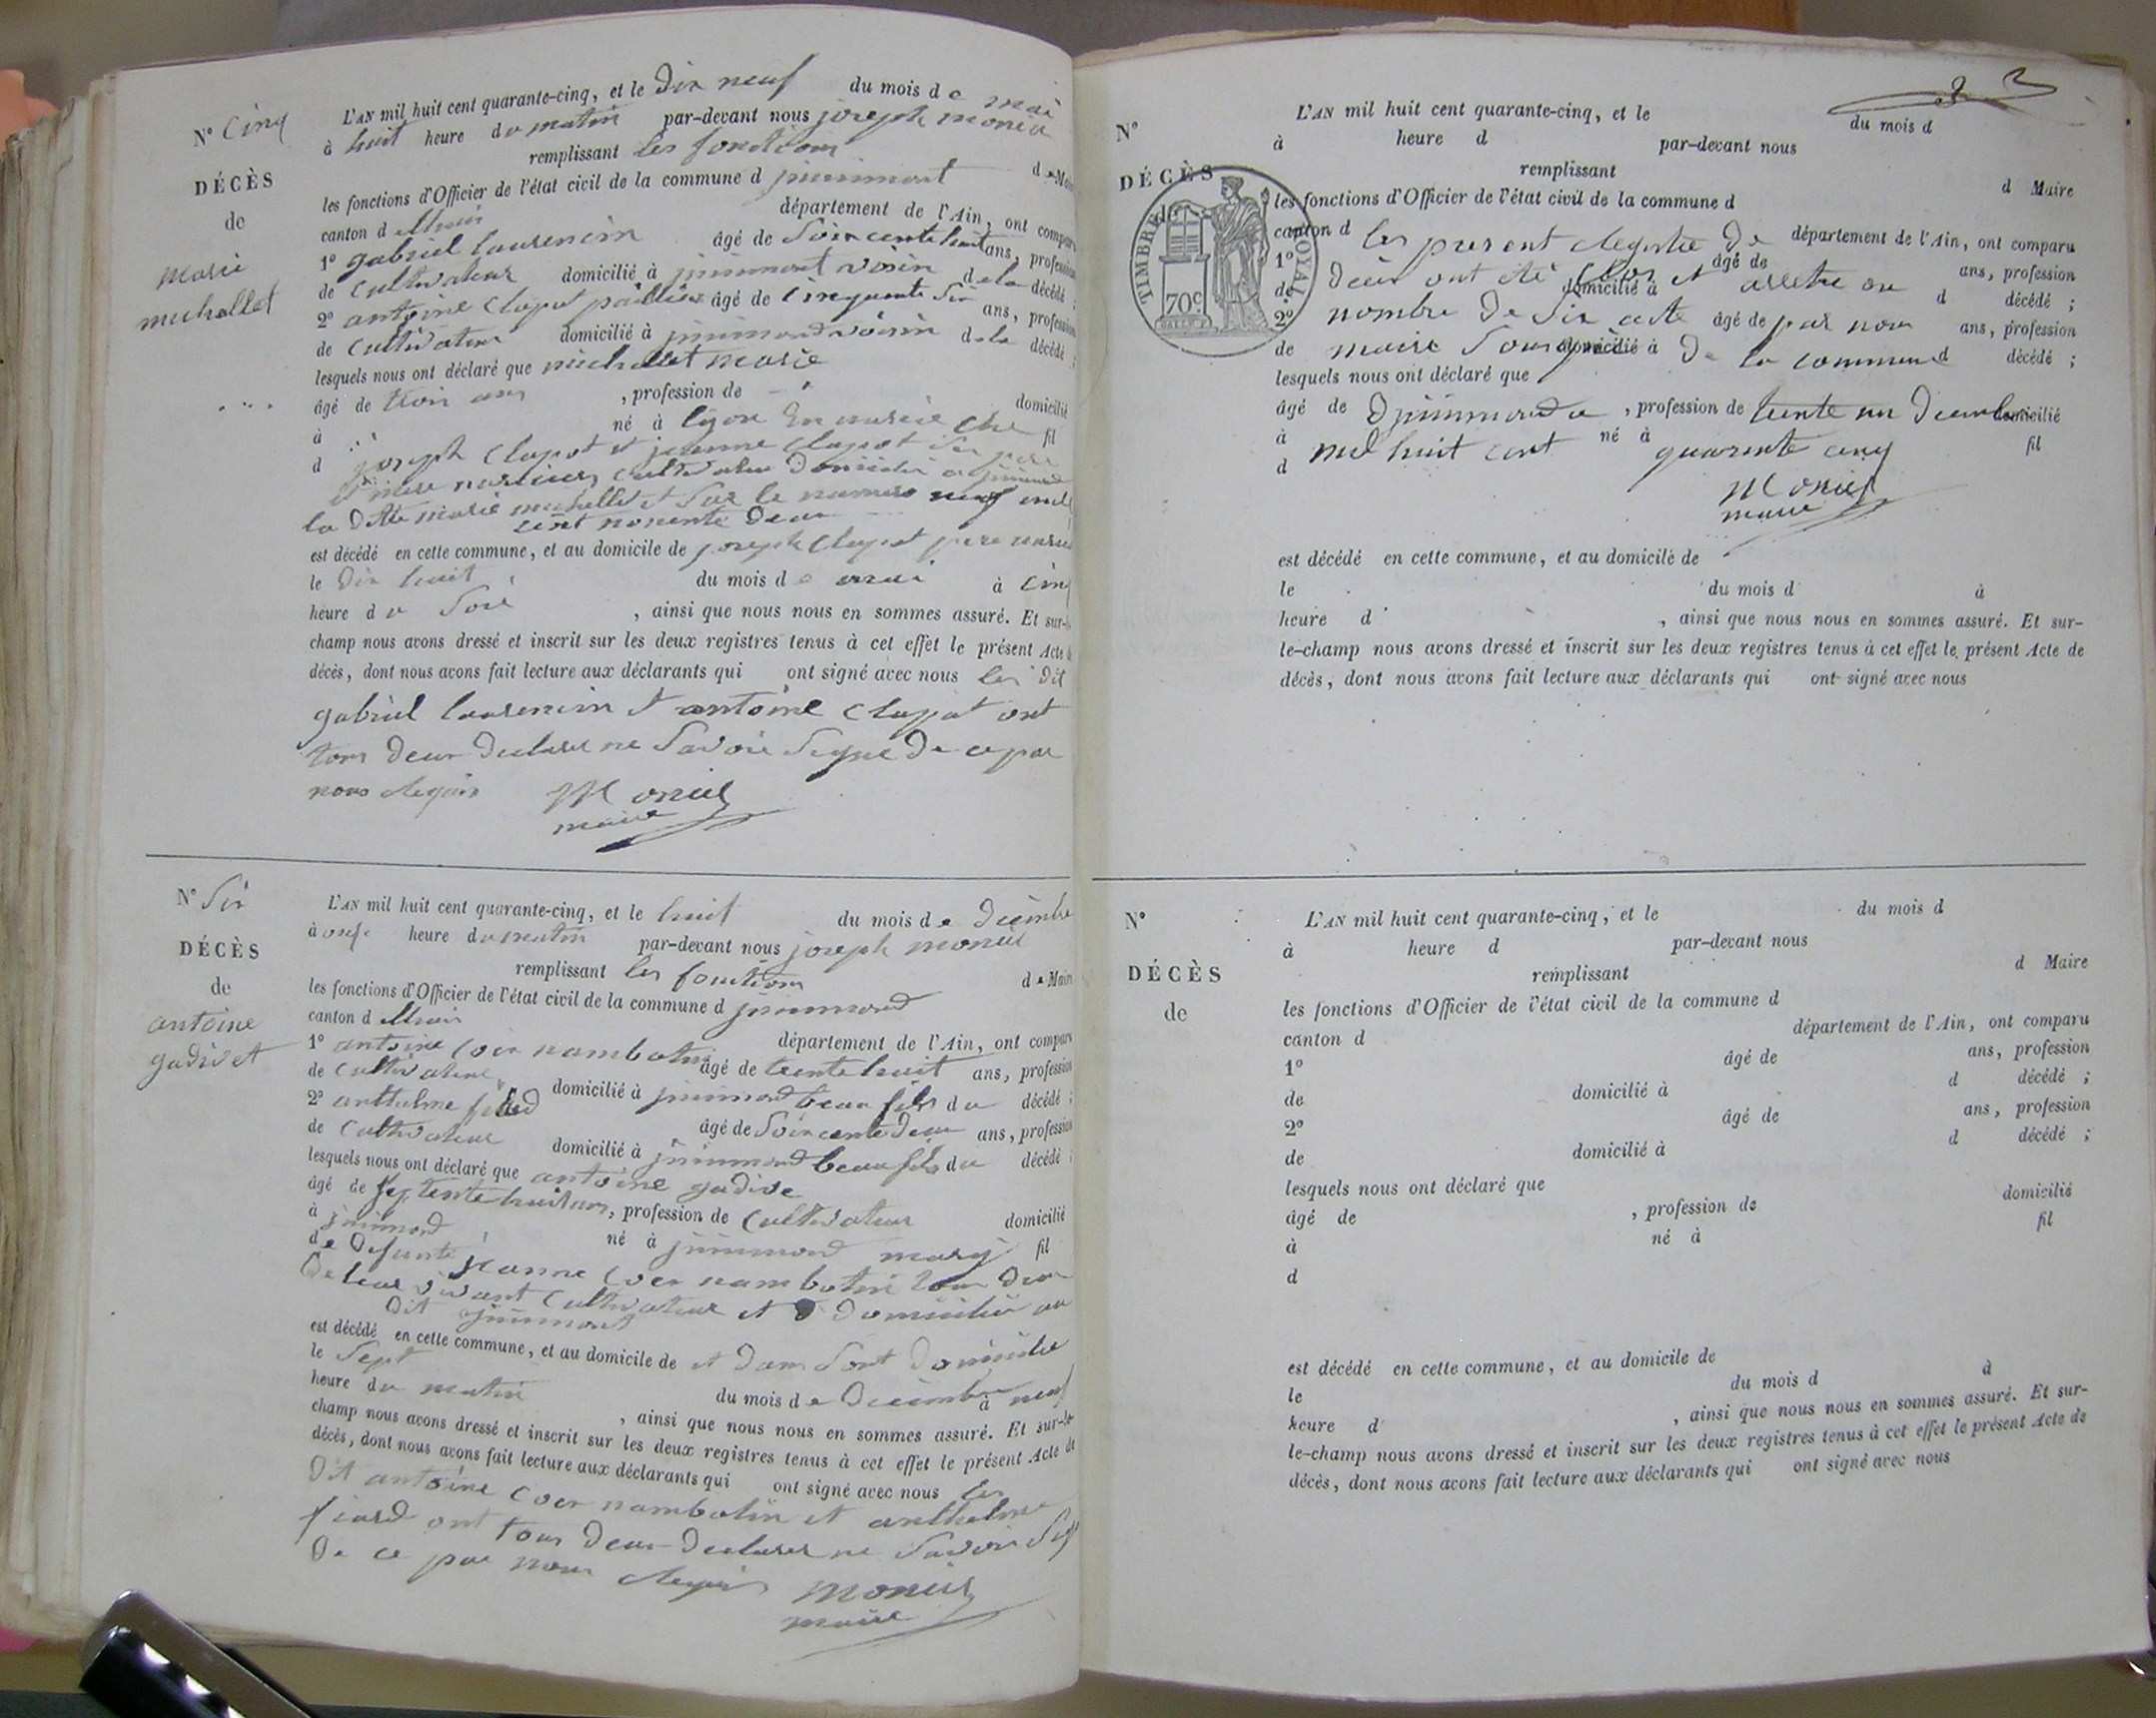 N° Cinq
DÉCÈS
de
marie
michallet
L'AN mil huit cent quarante-cinq, et le dix neuf du mois de mai
à huit heure du matin par-devant nous joseph monier
remplissant les fonctions de Maire
les fonctions d'Officier de l'état civil de la commune d
canton d
département de l'Ain, ont comparu
1° gabriel laurencin âgé de Soixente huit ans, profession
de Cultivateur domicilié à voisin de la décédé ;
2° antoine Clapot âgé de Cinquante Six ans, profession
de Cultivateur domicilié à voisin de la décédé ;
lesquels nous ont déclaré que michallet marie
âgé de trois ans , profession de domicilié
à né à lyon En nurice Che fil
d joseph Clapot et jeanne Clapot Ses pere
et mere nurciers Cultivateur Domicilié a
la Ditte marie michallet Sur le numero neuf mil
cent nonente Deux
est décédé en cette commune, et au domicile de joseph Clapot pere
le Dix huit du mois de mai à Cinq
heure du Soir , ainsi que nous nous en sommes assuré. Et sur-le-
champ nous avons dressé et inscrit sur les deux registres tenus à cet effet le présent Acte de
décès, dont nous avons fait lecture aux déclarants qui ont signé avec nous les Dit
gabriel laurencin et antoine Clapot ont
tous Deux Declare ne Savoir Signe De ce par
nous Requis Monier
maire
N° Six
DÉCÈS
de
antoine
gadivet
L'AN mil huit cent quarante-cinq, et le huit du mois de Decembre
à onze heure du matin par-devant nous joseph monier
remplissant les fonctions de Maire
les fonctions d'Officier de l'état civil de la commune d
canton d
département de l'Ain, ont comparu
1° antoine Coer nambotin âgé de trente huit ans, profession
de Cultivateur domicilié à beau fils du décédé ;
2° anthelme âgé de Soixcente Deux ans, profession
de Cultivateur domicilié à beau fils du décédé ;
lesquels nous ont déclaré que antoine gadive
âgé de Septente huit ans, profession de Cultivateur domicilié
à né à fil
de Defunte jeanne Coer nambotin tous Deux
De leur vivant Cultivateur et Domicilié au
Dit
est décédé en cette commune, et au domicile de et Dans Sont Domicile
le Sept du mois de Decembre à neuf
heure du matin , ainsi que nous nous en sommes assuré. Et sur-le-
champ nous avons dressé et inscrit sur les deux registres tenus à cet effet le présent Acte de
décès, dont nous avons fait lecture aux déclarants qui ont signé avec nous les
Dit antoine Coer nambotin et anthelme
ont tous Deux Declarer ne Savoir
De ce par nous Requis Monier
maire
N°
DÉCÈS
de
TIMBRE ROYAL
70c
L'AN mil huit cent quarante-cinq, et le du mois d
à heure d par-devant nous
remplissant d Maire
les fonctions d'Officier de l'état civil de la commune d
canton d département de l'Ain, ont comparu
1° âgé de ans, profession
de domicilié à d décédé ;
2° âgé de ans, profession
de domicilié à d décédé ;
lesquels nous ont déclaré que
âgé de , profession de domicilié
à né à fil
d
Les present Registre De
Deces ont été Clos et arretre au
nombre De Six acte par nous
maire Sousigné De la commune
trente un Decembre
mil huit cent quarente cinq
Monier
maire
est décédé en cette commune, et au domicile de
le du mois d à
heure d , ainsi que nous nous en sommes assuré. Et sur-
le-champ nous avons dressé et inscrit sur les deux registres tenus à cet effet le présent Acte de
décès, dont nous avons fait lecture aux déclarants qui ont signé avec nous
N°
DÉCÈS
de
L'AN mil huit cent quarante-cinq, et le du mois d
à heure d par-devant nous
remplissant d Maire
les fonctions d'Officier de l'état civil de la commune d
canton d département de l'Ain, ont comparu
1° âgé de ans, profession
de domicilié à d décédé ;
2° âgé de ans, profession
de domicilié à d décédé ;
lesquels nous ont déclaré que
âgé de , profession de domicilié
à né à fil
d
est décédé en cette commune, et au domicile de
le du mois d à
heure d , ainsi que nous nous en sommes assuré. Et sur-
le-champ nous avons dressé et inscrit sur les deux registres tenus à cet effet le présent Acte de
décès, dont nous avons fait lecture aux déclarants qui ont signé avec nous